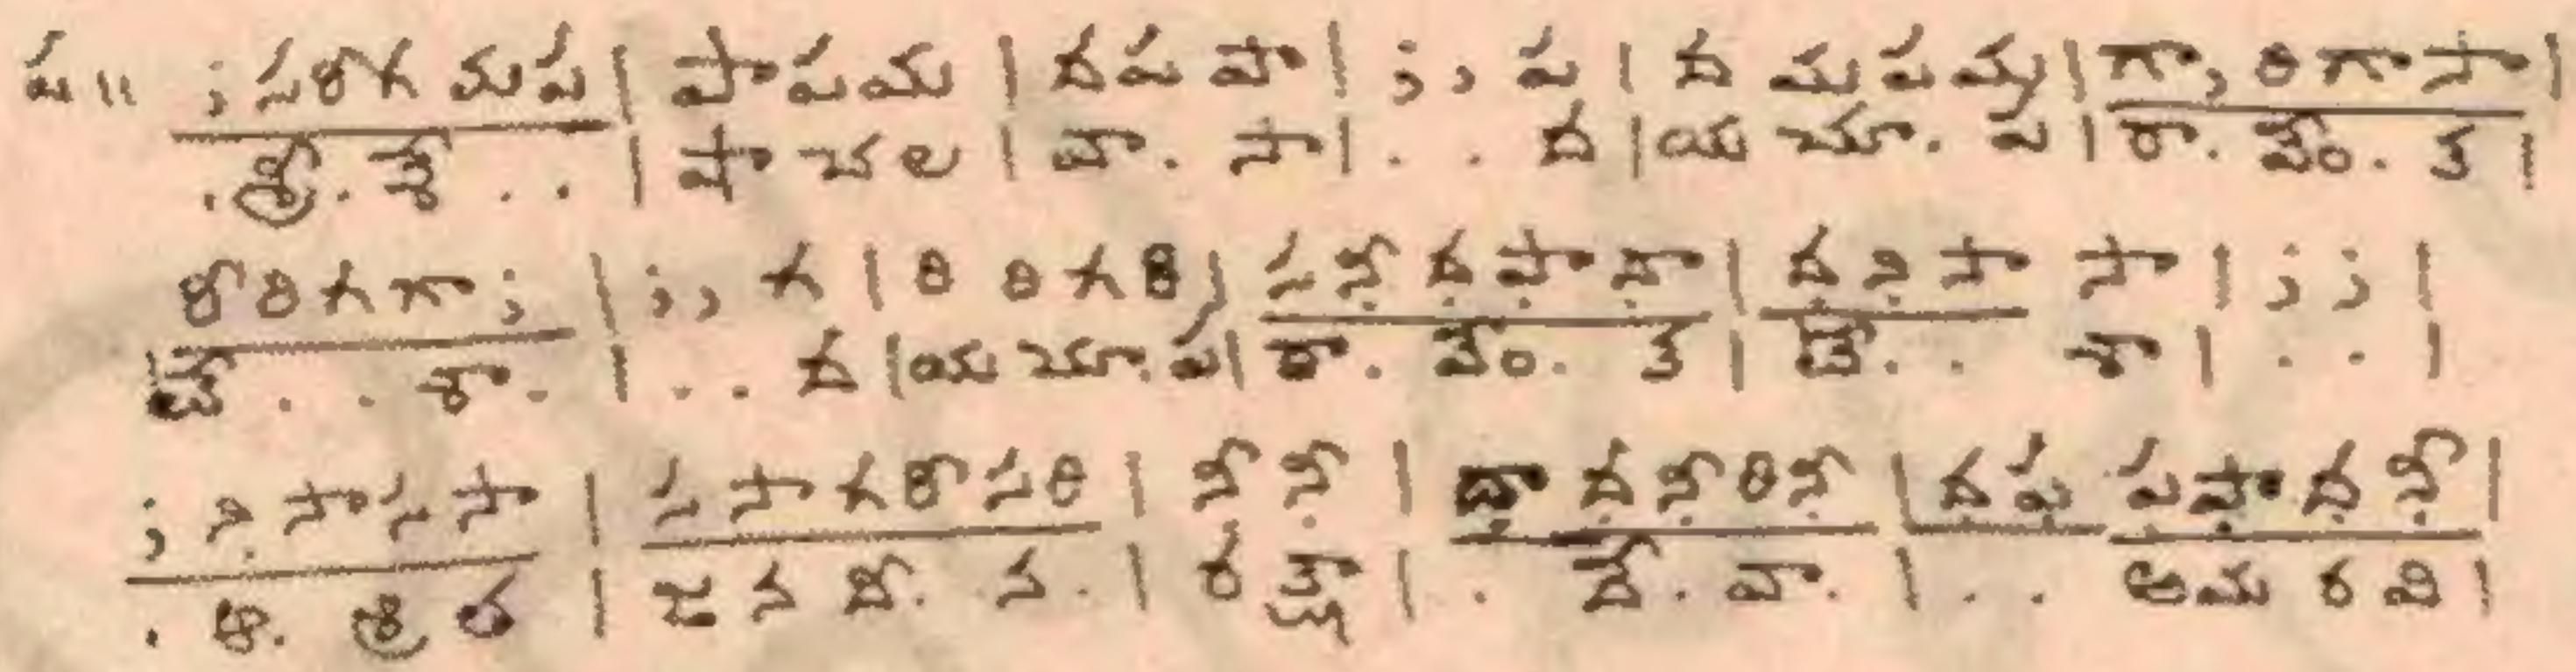 ప॥ ; సరిగ మప | పాపమ | దపపా | ; , ప | ద మపమ | గా, రిగాసా |
. శ్రీ . శే . . | షాచల | వా . సా | . . ద | య మా . ప | రా . వేం . క |
రీరిగగా ; | ; , గ | రి రి గరి | సనీదపాదా | దనిసా సా | ; ; |
టే . . శా . | . . ద | యమా . ప | రా . వేం . క | టే . . శా | . . |
; నిసాససా | ససాగరీసరి | నీనీ | దాదనీరినీ | దప పపాదనీ |
. ఆ . శ్రిత | జనదీ . న . | రక్షా | . దే . వా . | . . అమరవి |